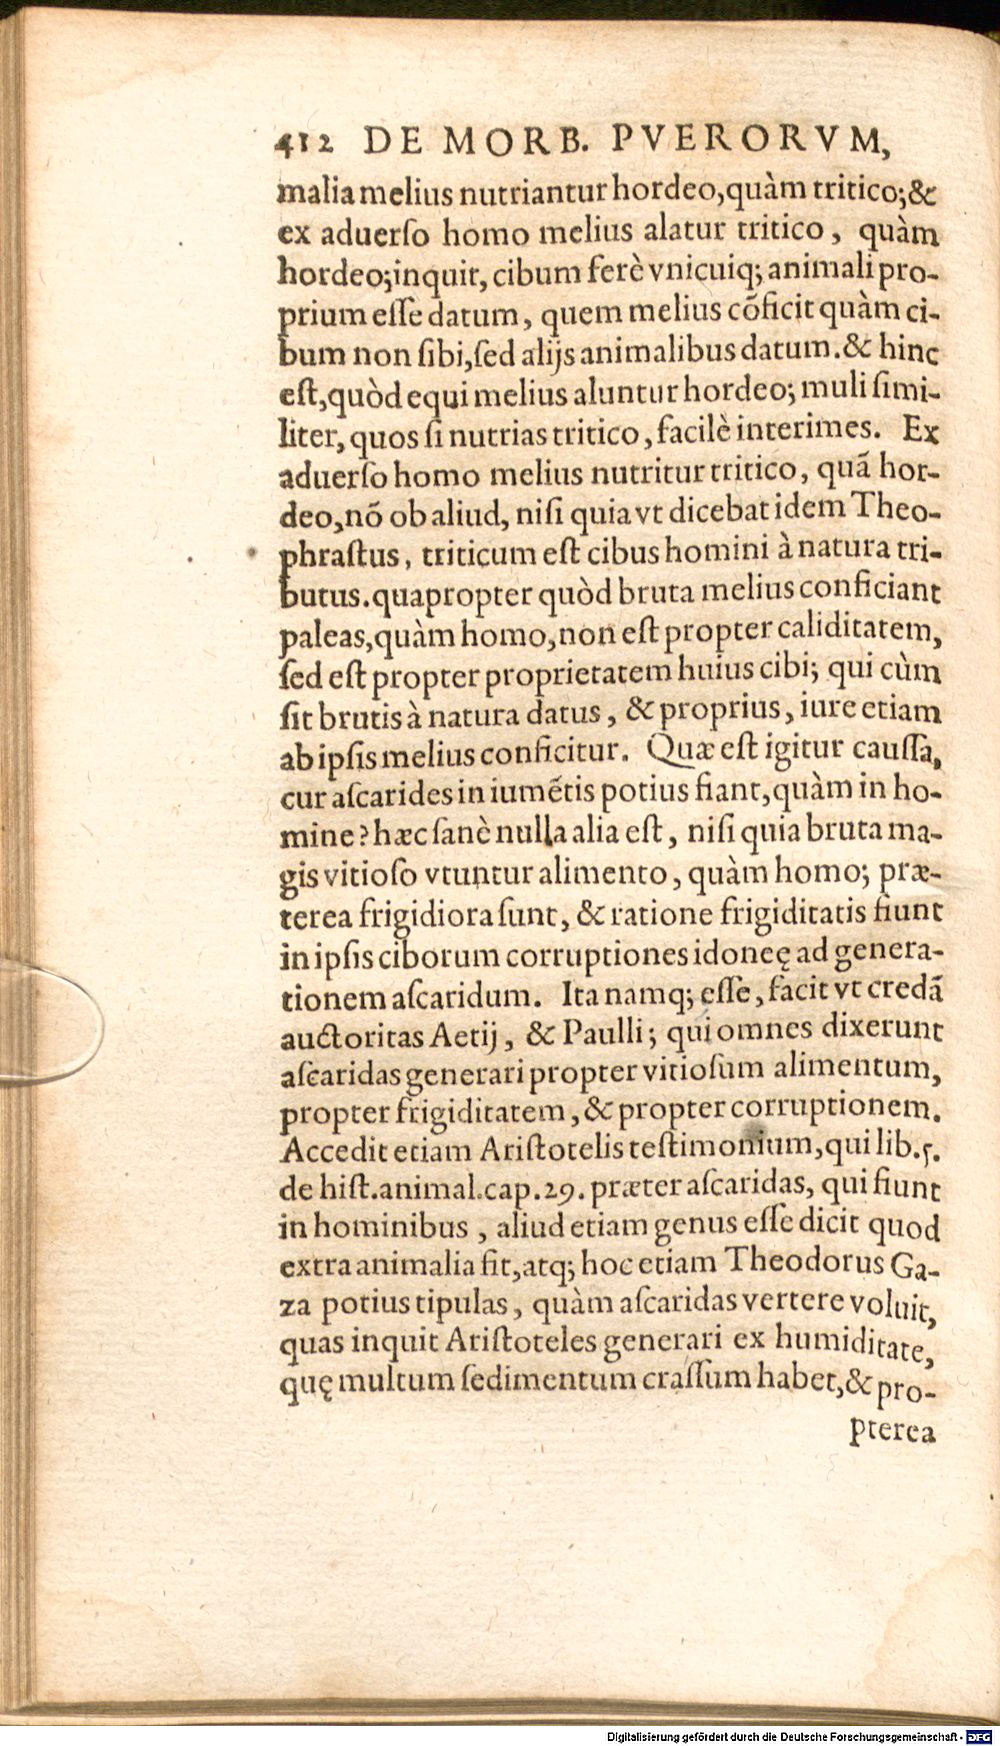 412 DE MORB. PVERORVM,
malia melius nutriantur hordeo, quàm tritico; &
ex aduerſo homo melius alatur tritico, quàm
hordeo; inquit, cibum ferè vnicuiq; animali pro-
prium eſſe datum, quem melius cõficit quàm ci-
bum non ſibi, ſed alijs animalibus datum. & hinc
eſt, quòd equi melius aluntur hordeo; muli ſimi-
liter, quos ſi nutrias tritico, facilè interimes. Ex
aduerſo homo melius nutritur tritico, quã hor-
deo, nõ ob aliud, niſi quia vt dicebat idem Theo-
phraſtus, triticum eſt cibus homini à natura tri-
butus. quapropter quòd bruta melius conficiant
paleas, quàm homo, non eſt propter caliditatem,
ſed eſt propter proprietatem huius cibi; qui cùm
ſit brutis à natura datus, & proprius, iure etiam
ab ipſis melius conficitur. Quæ eſt igitur cauſſa,
cur aſcarides in iumẽtis potius fiant, quàm in ho-
mine? hæc ſanè nulla alia eſt, niſi quia bruta ma-
gis vitioſo vtuntur alimento, quàm homo; præ-
terea frigidiora ſunt, & ratione frigiditatis fiunt
in ipſis ciborum corruptiones idoneę ad genera-
tionem aſcaridum. Ita namq; eſſe, facit vt credã
auctoritas Aetij, & Paulli; qui omnes dixerunt
aſcaridas generari propter vitioſum alimentum,
propter frigiditatem, & propter corruptionem.
Accedit etiam Ariſtotelis teſtimonium, qui lib. 5.
de hiſt. animal. cap. 29. præter aſcaridas, qui fiunt
in hominibus, aliud etiam genus eſſe dicit quod
extra animalia fit, atq; hoc etiam Theodorus Ga-
za potius tipulas, quàm aſcaridas vertere voluit,
quas inquit Ariſtoteles generari ex humiditate,
quę multum ſedimentum craſſum habet, & pro-
pterea
Digitalisierung gefördert durch die Deutsche Forschungsgemeinschaft - DFG